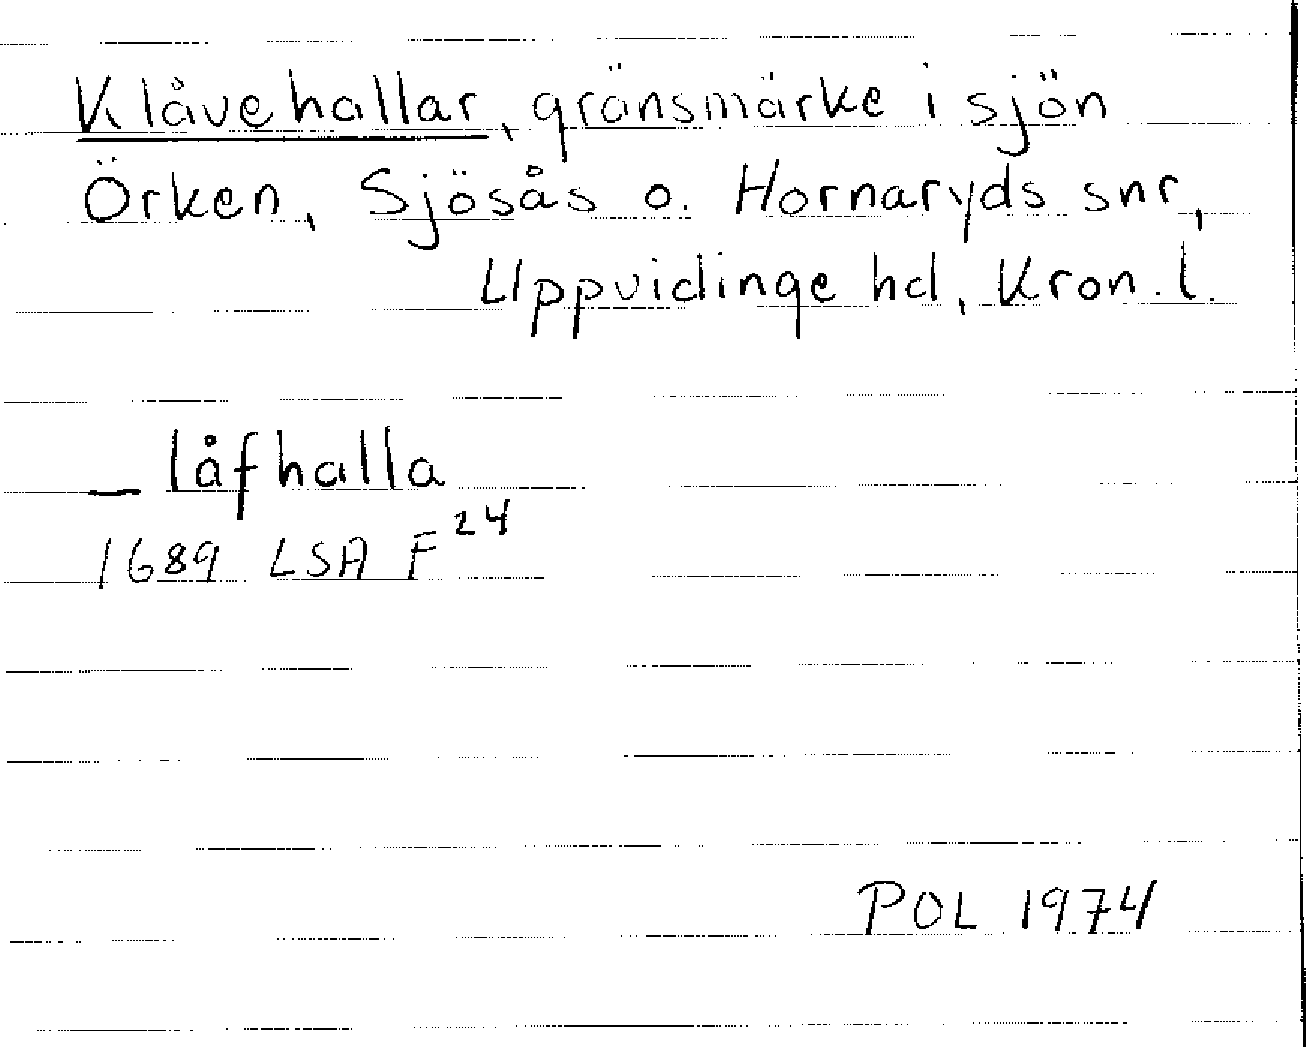 Klåvehallar, gränsmärke i sjön
Örken, Sjösås o. Hornaryds snr,
Uppvidinge hd, Kron. l.
_ låfhalla
1689 LSA F 24
POL 1974